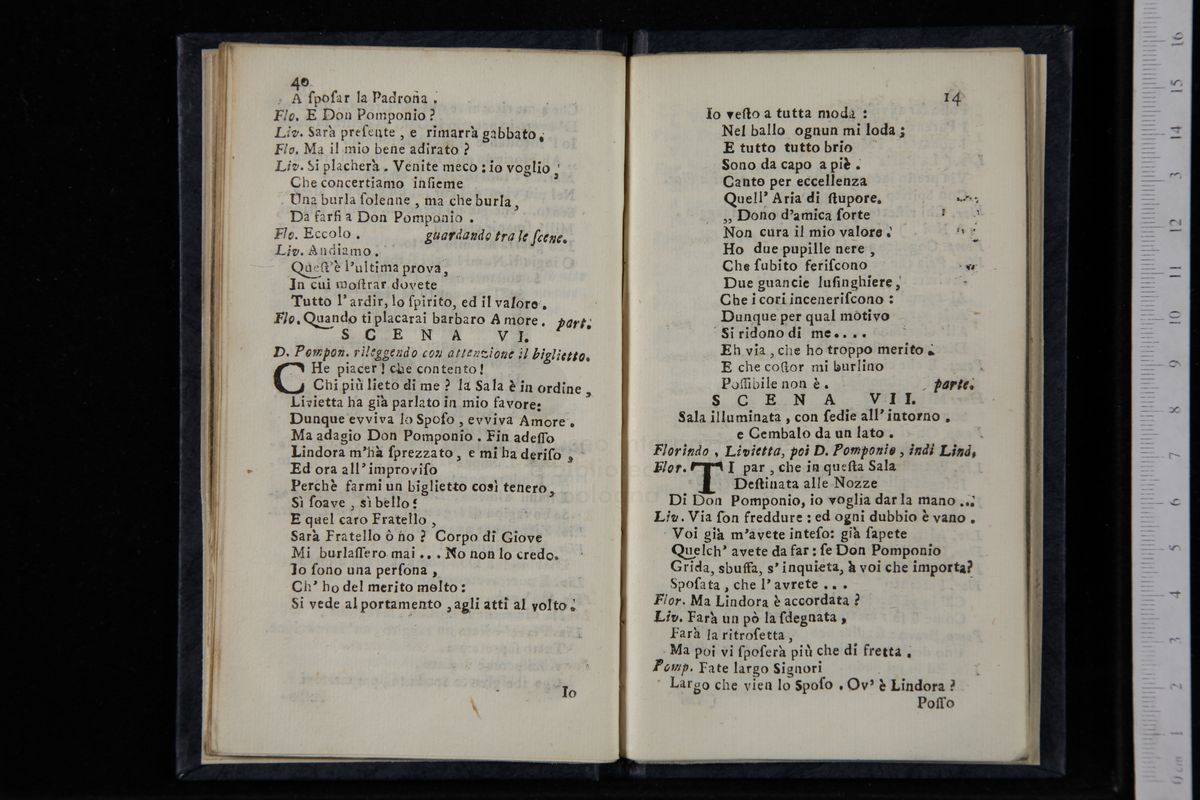 40
A ſpoſar la Padrona .
Flo. E Don Pomponio ?
Liv. Sarà preſente , e rimarrà gabbato.
Flo. Ma il mio bene adirato ?
Liv. Si placherà . Venite meco : io voglio ,
Che concertiamo inſieme
Una burla ſolenne , ma che burla,
Da farſi a Don Pomponio .
Flo. Eccolo . guardando tra le ſcene.
Liv. Andiamo .
Queſt'è l'ultima prova,
In cui moſtrar dovete
Tutto l'ardir, lo ſpirito, ed il valore.
Flo. Quando ti placarai barbaro Amore. part.
SCENA VI.
D. Pompon. rileggendo con attenzione il biglietto.
CHe piacer ! che contento !
Chi più lieto di me ? la Sala è in ordine ,
Livietta ha già parlato in mio favore:
Dunque evviva lo Spoſo , evviva Amore .
Ma adagio Don Pomponio . Fin adeſſo
Lindora m'hà ſprezzato , e mi ha deriſo ,
Ed ora all'improviſo
Perchè farmi un biglietto così tenero,
Sì ſoave , sì bello !
E quel caro Fratello ,
Sarà Fratello ò no ? Corpo di Giove
Mi burlaſſero mai ... No non lo credo.
Io ſono una perſona ,
Ch' ho del merito molto :
Si vede al portamento , agli atti al volto .
Io
14
Io veſto a tutta moda :
Nel ballo ognun mi loda ;
E tutto tutto brio
Sono da capo a piè .
Canto per eccellenza
Quell' Aria di ſtupore.
„ Dono d'amica ſorte
Non cura il mio valore .
Ho due pupille nere ,
Che ſubito feriſcono
Due guancie luſinghiere ,
Che i cori inceneriſcono :
Dunque per qual mòtivo
Si ridono di me ....
Eh via , che ho troppo merito .
E che coſtor mi burlino
Poſſibile non è . parte.
SCENA VII.
Sala illuminata , con ſedie all' intorno .
e Cembalo da un lato .
Florindo , Livietta, poi D. Pomponio , indi Lind.
Flor. TI par , che in queſta Sala
Deſtinata alle Nozze
Di Don Pomponio, io voglia dar la mano ...
Liv. Via ſon freddure : ed ogni dubbio è vano .
Voi già m'avete inteſo: già ſapete
Quelch' avete da far : ſe Don Pomponio
Grida, sbuffa, s'inquieta, à voi che importa?
Spoſata , che l'avrete ...
Flor. Ma Lindora è accordata ?
Liv. Farà un pò la ſdegnata ,
Farà la ritroſetta ,
Ma poi vi ſpoſerà più che di fretta .
Pomp. Fate largo Signori
Largo che vien lo Spoſo . Ov' è Lindora ?
Poſſo
16
15
14
13
12
11
10
9
8
7
6
5
4
3
2
1
0 cm